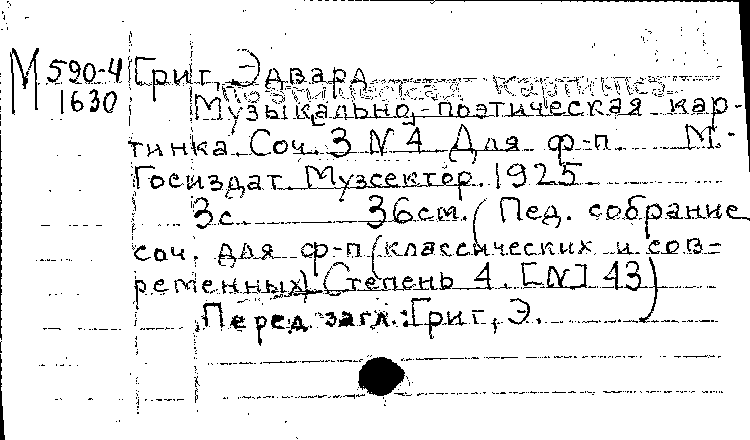 М 590-4 Григ, Эдвард
1630 Поэтическая картинка
Музыкально-поэтическая кар-
тинка. Соч. 3 N 4. Для ф-п. М.-
Госиздат. Музсектор. 1925
3с. 36см. (Пед. собрание
соч. для ф-п (классических и сов-
ременных) Степень 4. [N] 43)
Перед загл.: Григ, Э.